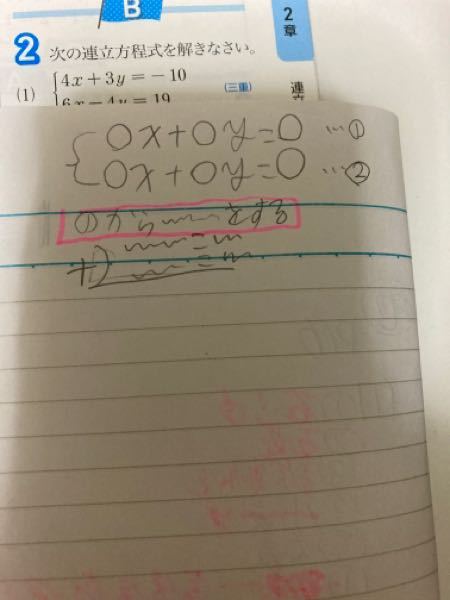 B
2 次の連立方程式を解きなさい。
2章
(1) {4x+3y=-10
(三重)
6x-4y=19
連立
{○x+○y=○ …①
○x+○y=○ …②
①から〰をする
+) 〰=〰
〰=〰